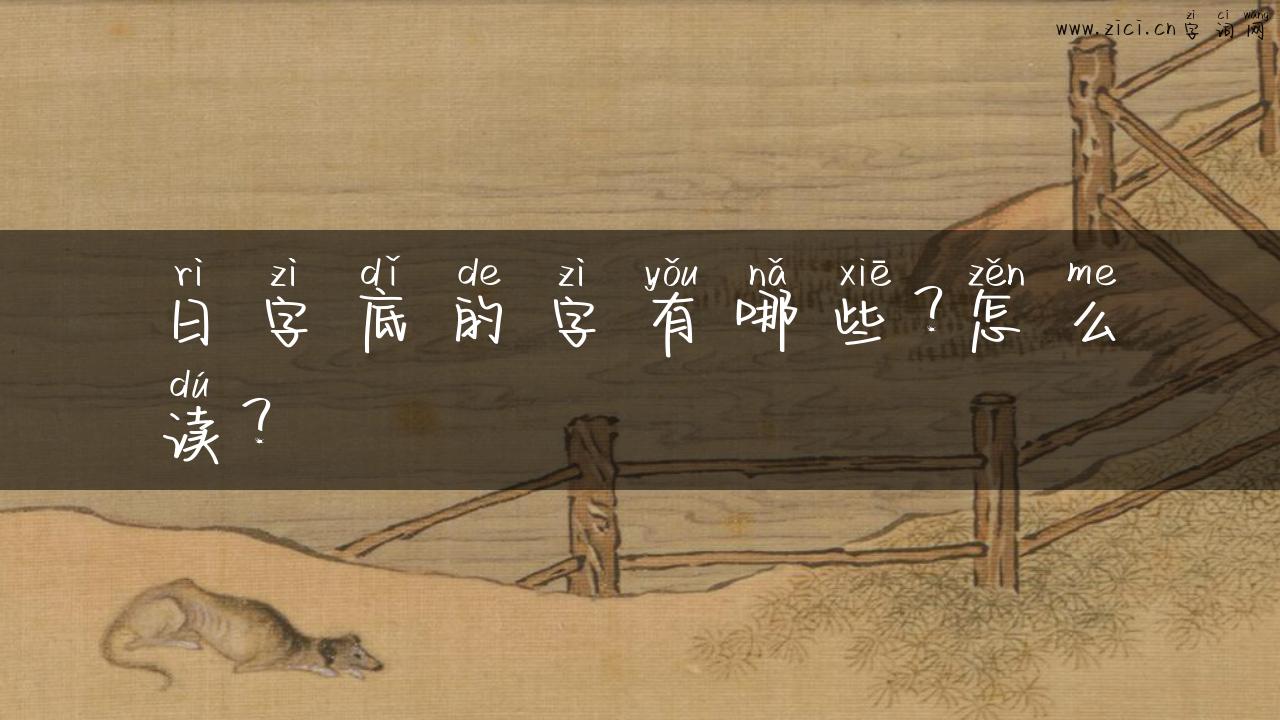 zì cí wǎng
www.zici.cn 字词网
rì zì dǐ de zì yǒu nǎ xiē zěn me
日字底的字有哪些?怎么
dú
读?